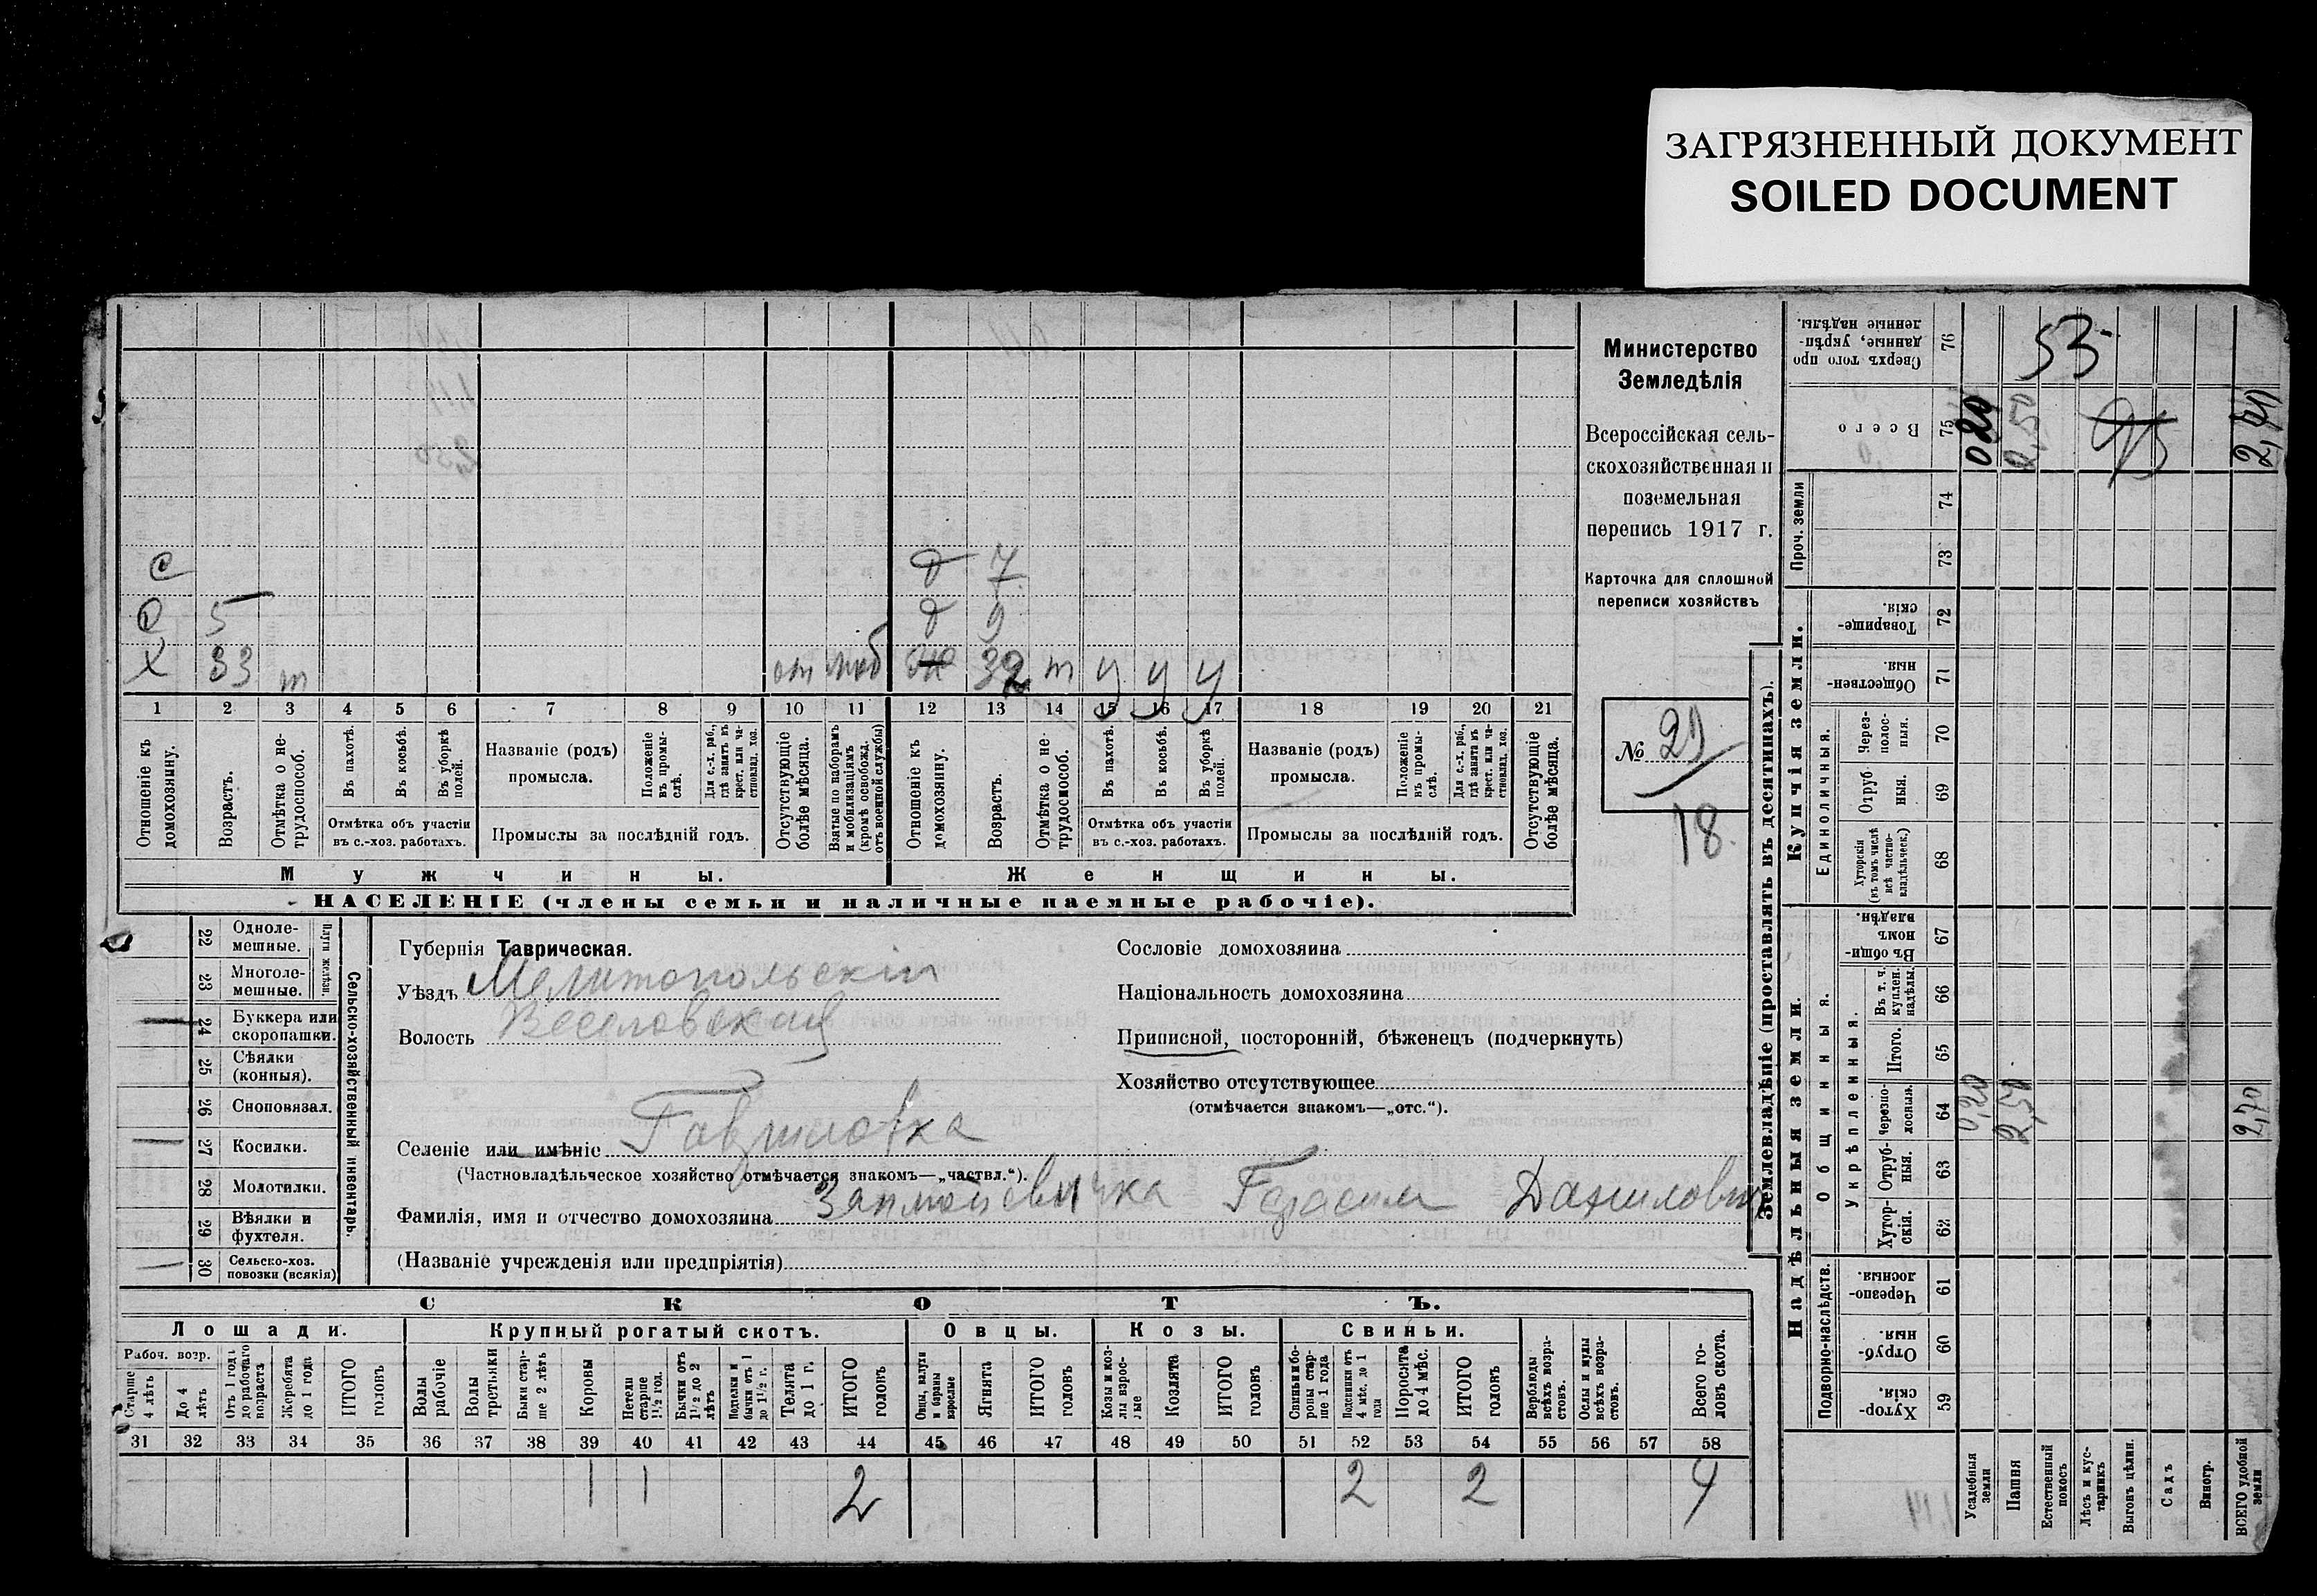 ЗАГРЯЗНЕННЫЙ ДОКУМЕНТ
SOILED DOCUMENT
с д 7
с 5 д 9
х 33 т от моб ж 32 т у у у
1 2 3 4 5 6 7 8 9 10 11 12 13 14 15 16 17 18 19 20 21
Отношеніе къ домохозяину.
Возрастъ.
Отмѣтка о не-трудоспособ.
Въ пахотѣ.
Въ косьбѣ.
Въ уборкѣ полей.
Отмѣтка объ участіи
въ с.-хоз. работахъ.
Названіе (родъ)
промысла.
Положеніе въ промы-слѣ.
Для с.-х. раб., гдѣ занятъ въ крест. или ча-стновлад. хоз.
Промыслы за послѣдній годъ.
Отсутствующіе болѣе мѣсяца.
Взятые по наборамъ и мобилизаціямъ (кромѣ освобожд. отъ военной службы)
Отношеніе къ домохозяину.
Возрастъ.
Отмѣтка о не-трудоспособ.
Въ пахотѣ.
Въ косьбѣ.
Въ уборкѣ полей.
Отмѣтка объ участіи
въ с.-хоз. работахъ.
Названіе (родъ)
промысла.
Положеніе въ промы-слѣ.
Для с.-х. раб., гдѣ занятъ въ крест. или ча-стновлад. хоз.
Промыслы за послѣдній годъ.
Отсутствующіе болѣе мѣсяца.
Мужчины.
Женщины.
НАСЕЛЕНІЕ (члены семьи и наличные наемные рабочіе).
Министерство
Земледѣлія
Всероссійская сель-
скохозяйственная и
поземельная
перепись 1917 г.
Карточка для сплошной
переписи хозяйствъ
№ 21
18.
Сельско-хозяйственный инвентарь.
Плуги желѣзн.
22 Одноле-мешные.
23 Многоле-мешные.
24 Буккера или скоропашки.
25 Сѣялки (конныя).
26 Сноповязал.
27 Косилки.
28 Молотилки.
29 Вѣялки и фухтеля.
30 Сельско-хоз. повозки (всякія)
Губернія Таврическая.
Уѣздъ Мелитопольскій
Волость Веселовская
Селеніе или имѣніе Гавриловка
(Частновладѣльческое хозяйство отмѣчается знакомъ—„частвл.“).
Фамилія, имя и отчество домохозяина Герасим Данилович
(Названіе учрежденія или предпріятія)
Сословіе домохозяина
Національность домохозяина
Приписной, посторонній, бѣженецъ (подчеркнуть)
Хозяйство отсутствующее
(отмѣчается знакомъ—„отс.“).
СКОТЪ.
Лошади.
Крупный рогатый скотъ.
Овцы.
Козы.
Свиньи.
Рабоч. возр.
Старше 4 лѣтъ
До 4 лѣтъ
Отъ 1 года до рабочаго возраста
Жеребята до 1 года
ИТОГО головъ
Волы рабочіе
Волы третьяки
Быки стар-ше 2 лѣтъ
Коровы
Нетели старше 1½ год.
Бычки отъ 1½ до 2 лѣтъ
Подтелки и бычки отъ 1 до 1½ г.
Телята до 1 г.
ИТОГО головъ
Овцы, валухи и бараны взрослые
Ягнята
ИТОГО головъ
Козы и коз-лы взрос-лые
Козлята
ИТОГО головъ
Свиньи и бо-ровы стар-ше 1 года
Подсвинки отъ 4 мѣс. до 1 года
Поросята до 4 мѣс.
ИТОГО головъ
Верблюды всѣхъ возра-стовъ.
Ослы и мулы всѣхъ возра-стовъ.
Всего го-ловъ скота.
31 32 33 34 35 36 37 38 39 40 41 42 43 44 45 46 47 48 49 50 51 52 53 54 55 56 57 58
1 1 2 2 2 4
Землевладѣніе (проставлять въ десятинахъ).
Надѣльныя земли.
Купчія земли.
Подворно-наслѣдств.
Общинныя.
Укрѣпленныя.
Единоличныя.
Проч. земли
Хутор-скія. 59
Отруб-ныя. 60
Черезпо-лосныя. 61
Хутор-скія. 62
Отруб-ныя. 63
Черезпо-лосныя. 64
Итого. 65
Въ т. ч. куплен. надѣлы. 66
Въ общин-номъ владѣн. 67
Хуторскія (въ томъ числѣ всѣ частно-владѣльческ.) 68
Отруб-ныя. 69
Через-полос-ныя. 70
Обществен-ныя. 71
Товарище-скія. 72
73
74
Всего 75
Сверхъ того про-данные, укрѣп-ленные надѣлы. 76
Усадебныя земли
Пашня
Естественный покосъ
Лѣсъ и кус-тарникъ
Выгонъ цѣлин.
Садъ
Виногр.
ВСЕГО удобной земли
0,20 2,50 2,70
020 2,50
53